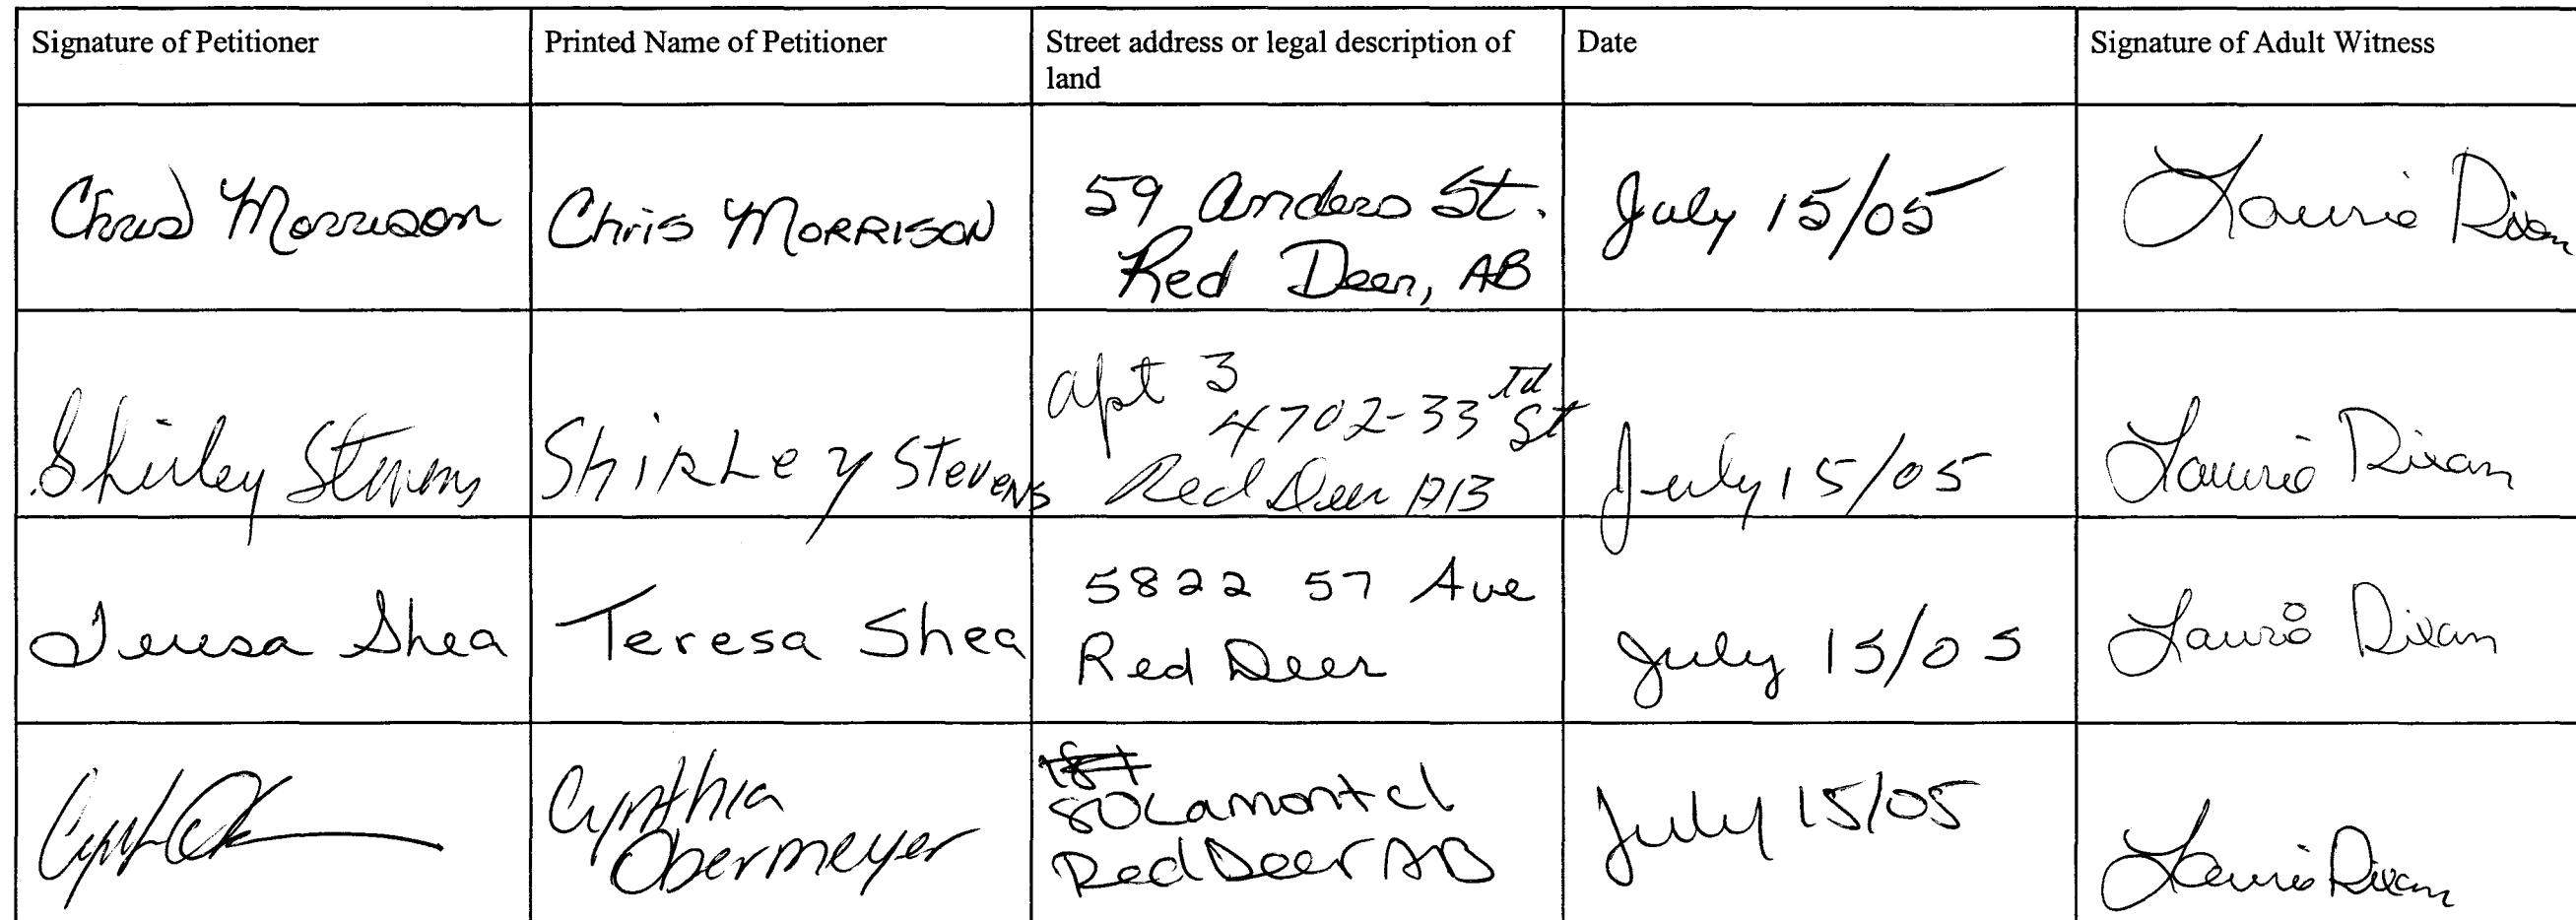 Signature of Petitioner
Printed Name of Petitioner
Street address or legal description of
land
Date
Signature of Adult Witness
Chris Morrison
Chris MORRISON
59 Anders St.
Red Deer, AB
July 15/05
Laurie Dixan
Shirley Stevens
ShiRLey Stevens
apt 3
4702-33rd St
Red Deer AB
July 15/05
Laurie Dixan
Teresa Shea
Teresa Shea
5822 57 Ave
Red Deer
July 15/05
Laurie Dixan
Cynthia
Obermeyer
80 Lamont cl
Red Deer AB
July 15/05
Laurie Dixan